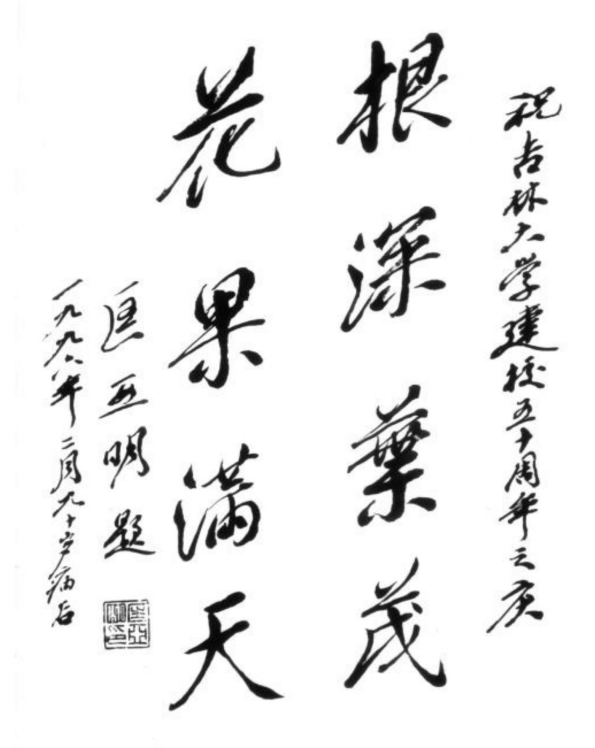 祝吉林大学建校五十周年之庆
根深葉茂
花果满天
匡亚明题
一九九六年二月九十岁病后